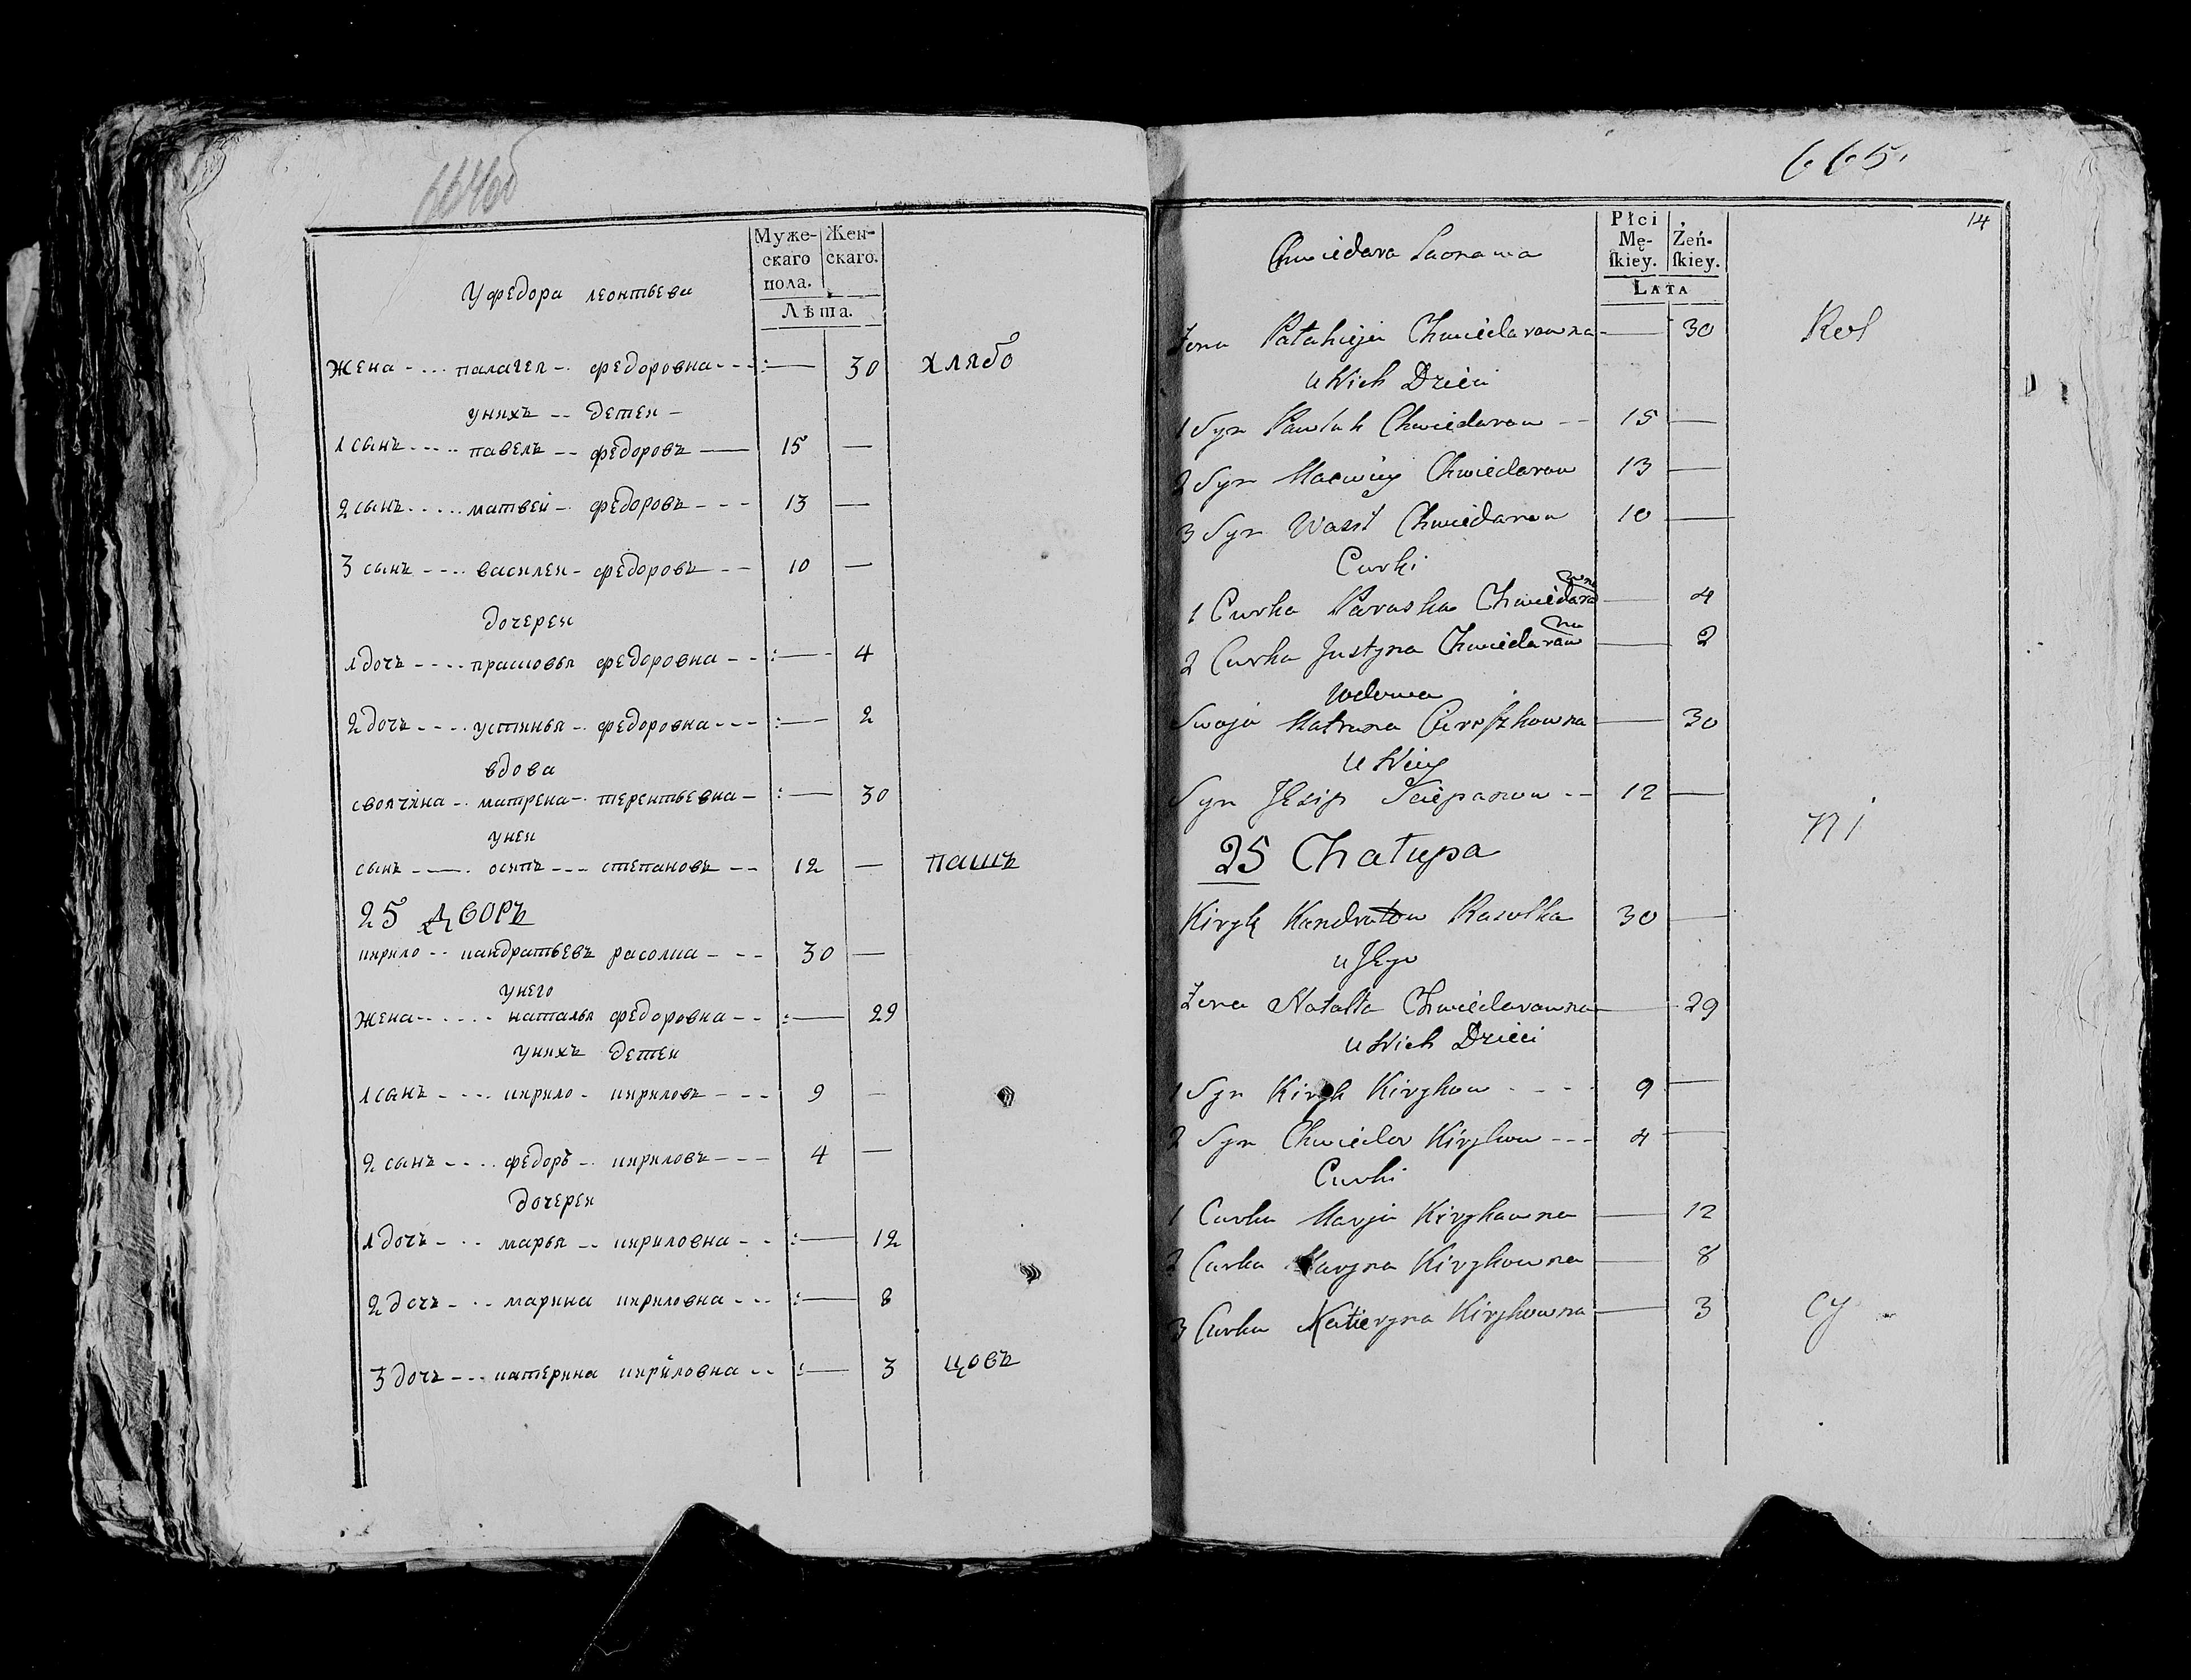 664об
Муже- Жен-
скаго скаго.
пола.
Лѣта.
У федора леонтьева
жена - - . . палагея - . федоровна - - - : — 30 хлябо
унихъ - - детей -
1 сынъ - - . . павелъ - - федоровъ — 15 —
2 сынъ . . . . . матвей - . федоровъ - - - 13 —
3 сынъ - - . . василей - федоровъ - - 10 —
дочерей
1 дочъ - - . . прасковья федоровна - - : — - 4
2 дочъ - - . . устинья - федоровна - - - : — 2
вдова
своячина - . матрена - . терентьевна - : — 30
уней
сынъ - — . осипъ - - - степановъ - - 12 — пашъ
25 дворъ
кирило - - кандратьевъ расолка - - - 30 —
унего
жена - . . . . - наталья федоровна - - : — 29
унихъ детей
1 сынъ - . . . кирило - кириловъ - - - 9 —
2 сынъ - . . . федоръ - . кириловъ - - - 4 —
дочерей
1 дочъ - . . марья - - кириловна - - : — 12
2 дочъ - . - марина кириловна - - - : — 8
3 дочъ - - . катерина кириловна - - : — 3 цовъ
665.
14
Płci
Mę- Żeń-
ſkiey. ſkiey.
LATA
Chwiedara Laonawa
Żona Pałahieja Chwiedarowna — 30 Rol
u Nich Dzieci
1 Syn Pawluk Chwiedarow - - 15 —
2 Syn Maćwiey Chwiedarow 13 —
3 Syn Wasil Chwiedarow 10 —
Curki
1 Curka Paraska Chwiedarowna — 4
2 Curka Justyna Chwiedarowna — 2
Wdowa
Swaja Matruna — 30
u Niey
Syn Jesip Sciepanow - - 12 —
ni
25 Chałupa
Kiryk Kandratow Rasolka 30 —
u Jego
Żona Natalla Chwiedarowna — 29
u Nich Dzieci
1 Syn Kiryk Kirykow - - - 9 —
2 Syn Chwiedor Kirykow - - - 4 —
Curki
1 Curka Marja Kirykowna — 12
2 Curka Maryna Kirykowna — 8
3 Curka Katieryna Kirykowna — 3 cy